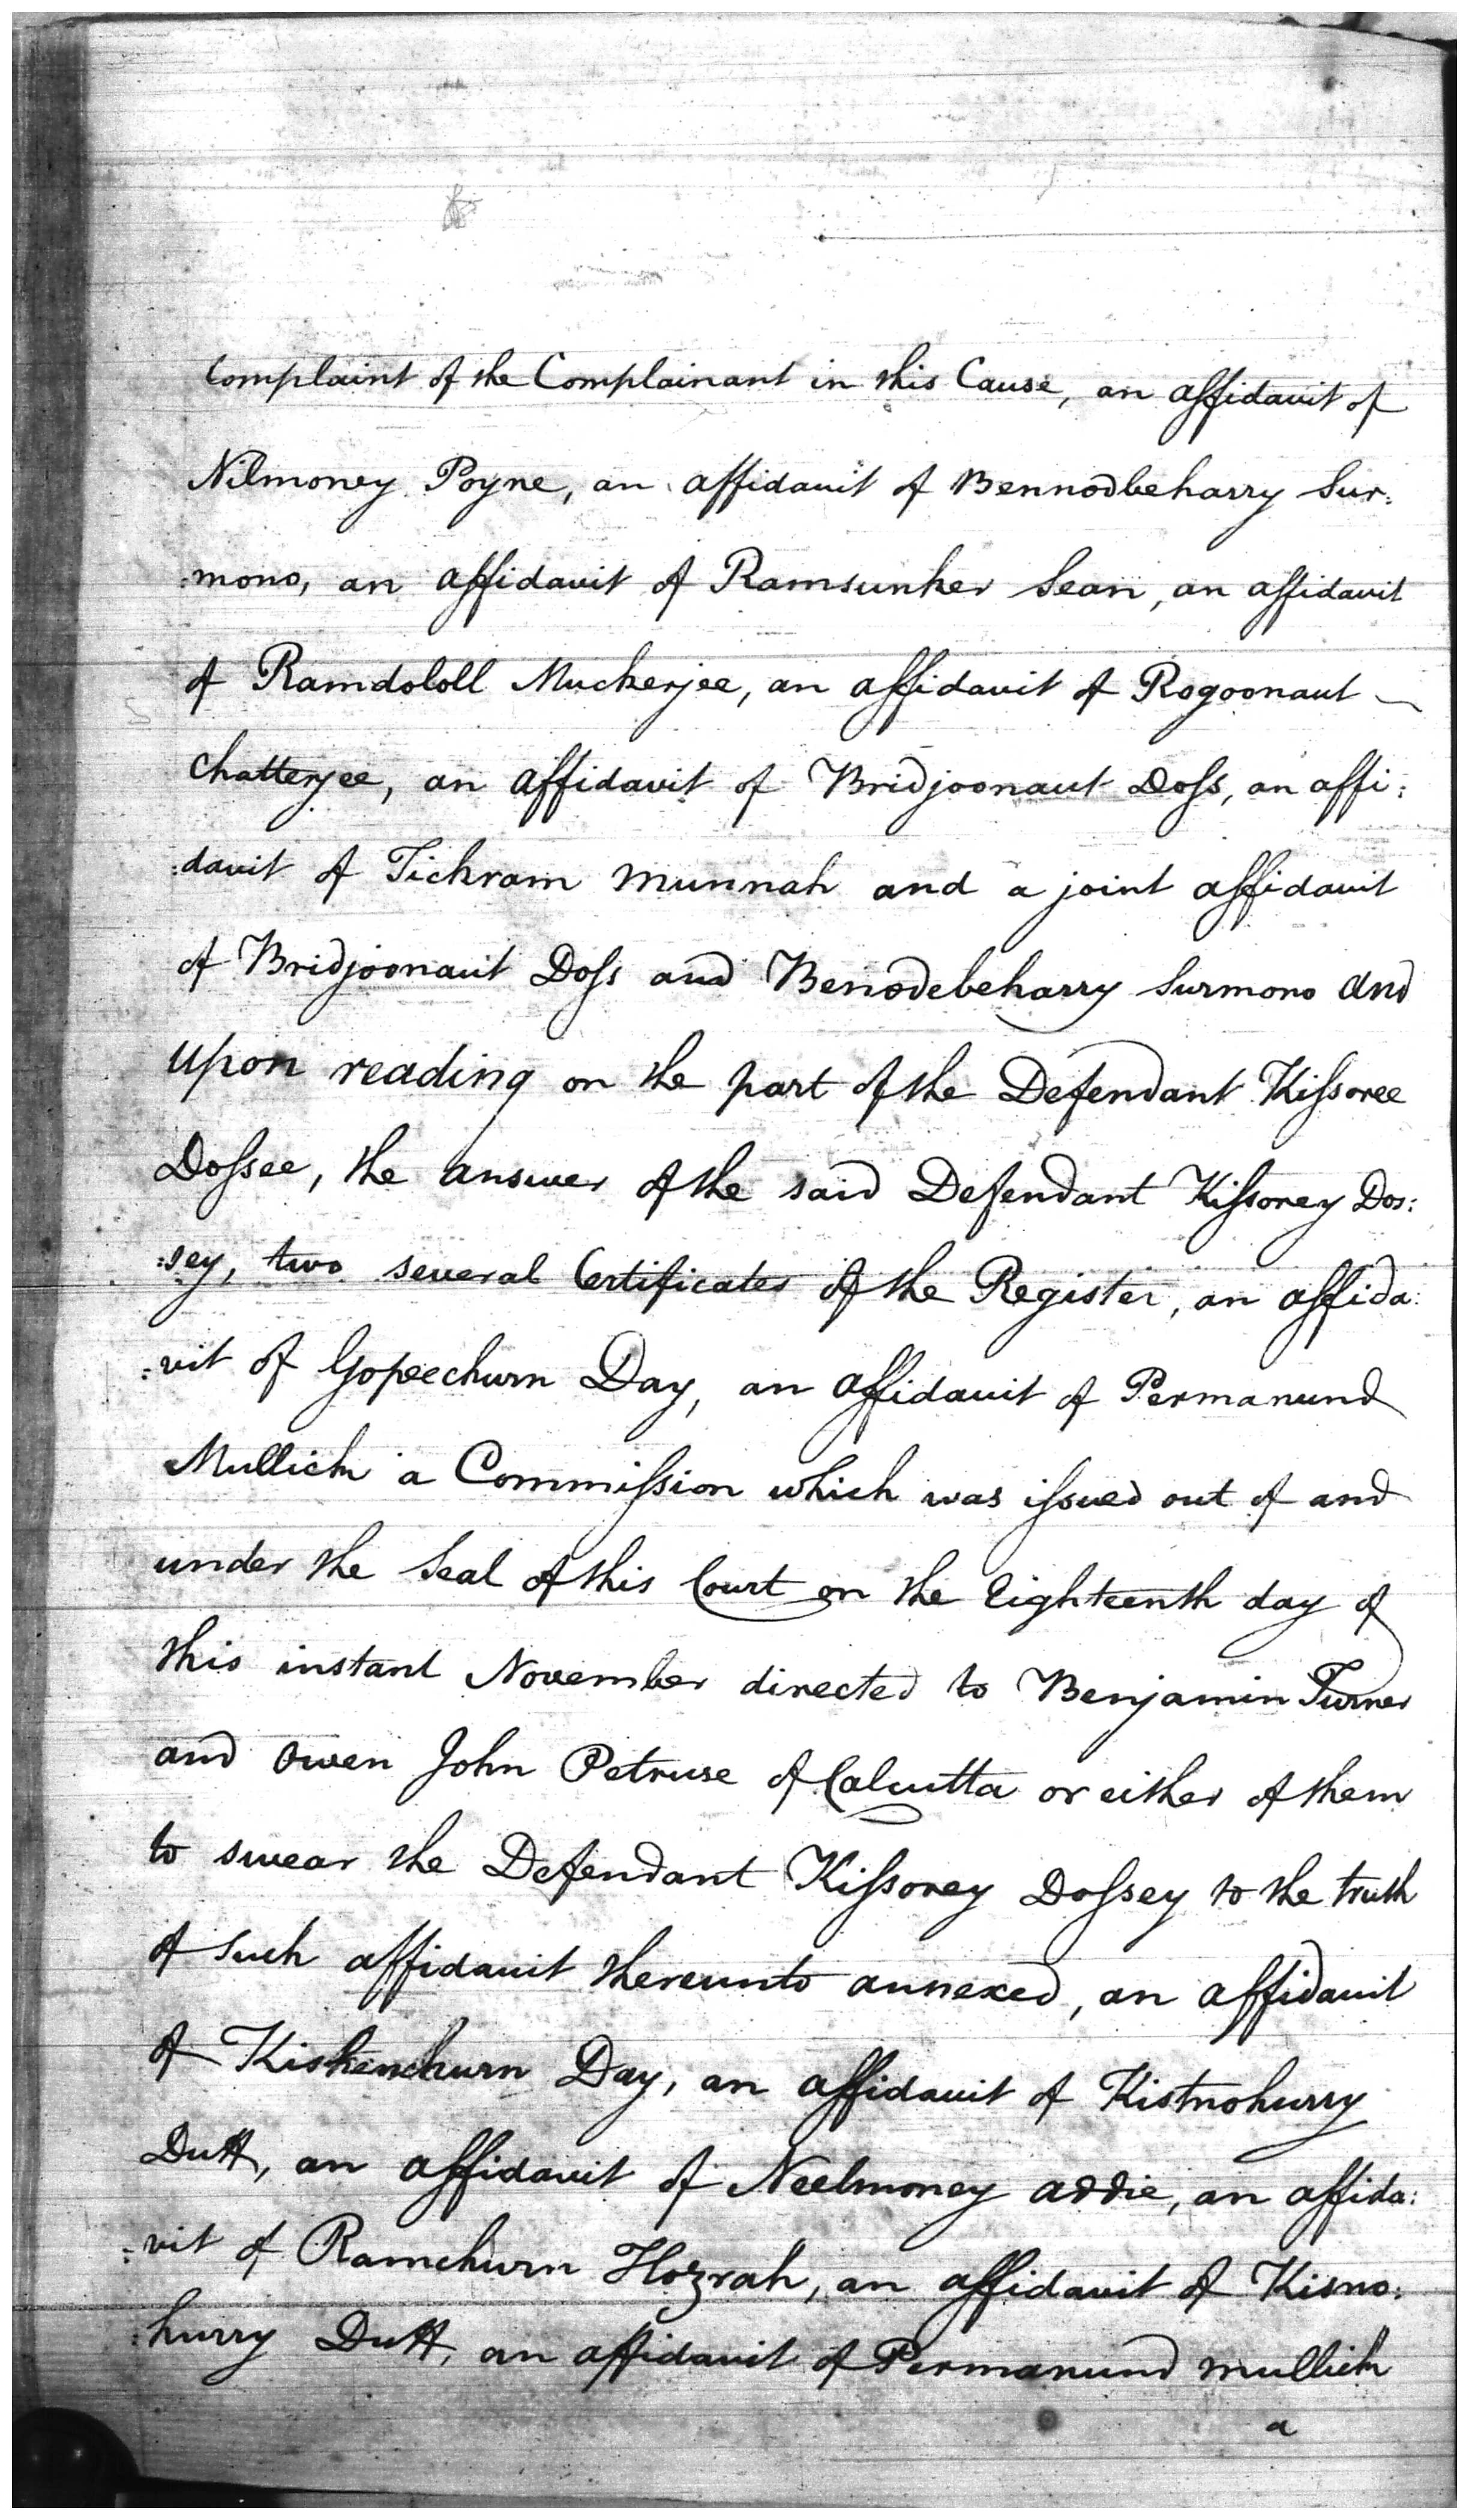 Complaint of the Complainant in this Cause, an affidavit of
Nilmoney Poyne, an affidavit of Bennodbeharry Sur:
:mono, an affidavit of Ramsunker Sean, an affidavit
of Ramdololl Muckerjee, an affidavit of Rogoonaut
Chatterjee, an affidavit of Bridjoonaut Doss, an affi:
:davit of Tickram Munnah and a joint affidavit
of Bridjoonaut Doss and Benodebeharry Surmono and
upon reading on the part of the Defendant Kissoree
Dossee, the answer of the said Defendant Kissorey Dos:
:sey, two several Certificates of the Register, an affida:
:vit of Gopeechurn Day, an affidavit of Permanund
Mullick a Commission which was issued out of and
under the Seal of this Court on the Eighteenth day of
this instant November directed to Benjamin Turner
and Owen John Petruse of Calcutta or either of them
to swear the Defendant Kissorey Dossey to the truth
of such affidavit thereunto annexed, an affidavit
of Kishenchurn Day, an affidavit of Kistnohurry
Dutt, an affidavit of Neelmoney addie, an affida:
:vit of Ramchurn Hozrah, an affidavit of Kisno:
:hurry Dutt, an affidavit of Permanund mullick
a